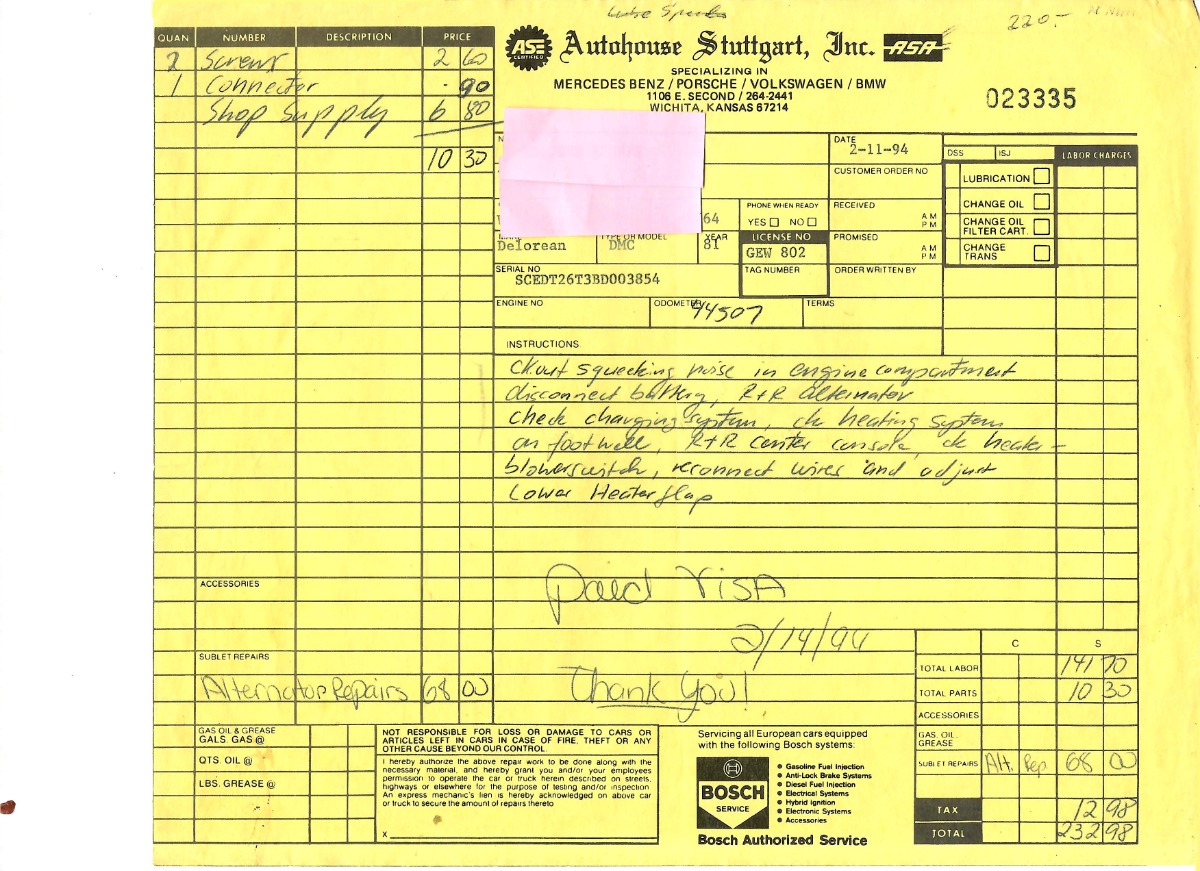 220.-
QUAN NUMBER DESCRIPTION PRICE
2 Screws 2 60
1 Connector .90
Shop Supply 6 80
10 30
ASE CERTIFIED Autohouse Stuttgart, Inc. ASA
SPECIALIZING IN
MERCEDES BENZ / PORSCHE / VOLKSWAGEN / BMW
1106 E. SECOND / 264-2441
WICHITA, KANSAS 67214
023335
DATE
2-11-94
CUSTOMER ORDER NO
DSS ISJ LABOR CHARGES
LUBRICATION
CHANGE OIL
CHANGE OIL
FILTER CART.
CHANGE
TRANS
64
PHONE WHEN READY
YES NO
RECEIVED AM
PM
TYPE OR MODEL YEAR
Delorean DMC 81
LICENSE NO
GEW 802
PROMISED AM
PM
SERIAL NO
SCEDT26T3BD003854
TAG NUMBER
ORDER WRITTEN BY
ENGINE NO ODOMETER 44507 TERMS
INSTRUCTIONS
Ckout squecking noise in engine compartment
disconnect battery, R+R alternator
check charging system, ck heating system
on footwell, R+R center console, ck heater-
blowerswitch, reconnect wires and adjust
Lower Heaterflap
ACCESSORIES
Paid VISA
2/14/94
Thank You!
SUBLET REPAIRS
Alternator Repairs 68 00
C S
TOTAL LABOR 141 70
TOTAL PARTS 10 30
ACCESSORIES
GAS, OIL,
GREASE
SUBLET REPAIRS Alt. Rep. 68 00
TAX 12 98
TOTAL 232 98
GAS OIL & GREASE
GALS. GAS @
QTS. OIL @
LBS. GREASE @
NOT RESPONSIBLE FOR LOSS OR DAMAGE TO CARS OR
ARTICLES LEFT IN CARS IN CASE OF FIRE, THEFT OR ANY
OTHER CAUSE BEYOND OUR CONTROL.
I hereby authorize the above repair work to be done along with the
necessary material, and hereby grant you and/or your employees
permission to operate the car or truck herein described on streets,
highways or elsewhere for the purpose of testing and/or inspection
An express mechanic's lien is hereby acknowledged on above car
or truck to secure the amount of repairs thereto
X
Servicing all European cars equipped
with the following Bosch systems:
BOSCH
SERVICE
Gasoline Fuel Injection
Anti-Lock Brake Systems
Diesel Fuel Injection
Electrical Systems
Hybrid Ignition
Electronic Systems
Accessories
Bosch Authorized Service